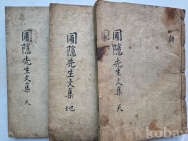 圃隱先生文集 天
圃隱先生文集 地
圃隱先生文集 人
kobay